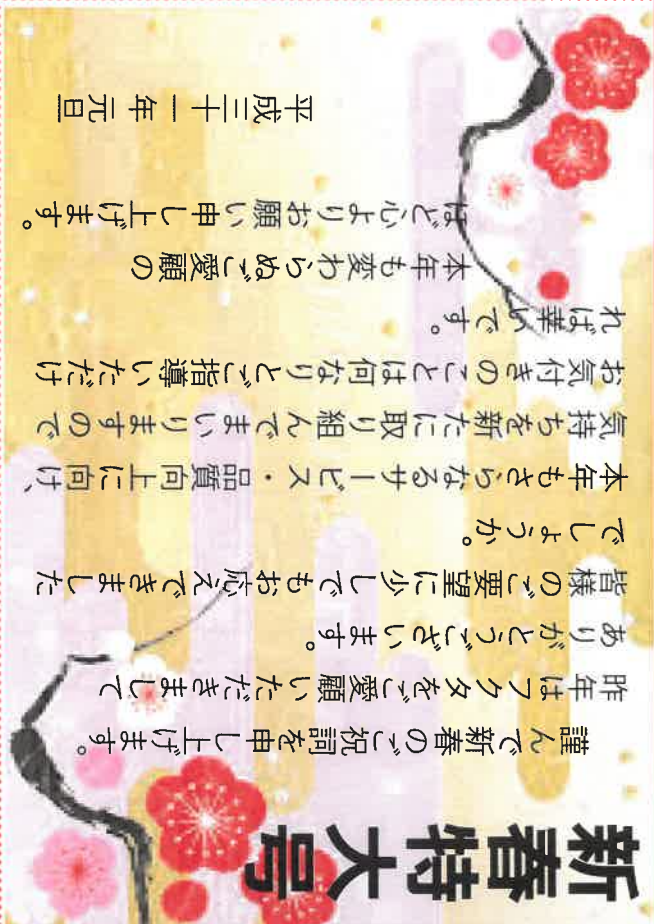 新春特大号
謹んで新春のご祝詞を申し上げます。
昨年はフクタをご愛願いただきまして
ありがとうございます。
皆様のご要望に少しでもお応えできました
でしょうか。
本年もさらなるサービス・品質向上に向け、
気持ちを新たに取り組んでまいりますので
お気付きのことは何なりとご指導いただけ
れば幸いです。
本年も変わらぬご愛願の
ほど心よりお願い申し上げます。
平成三十一年 元旦